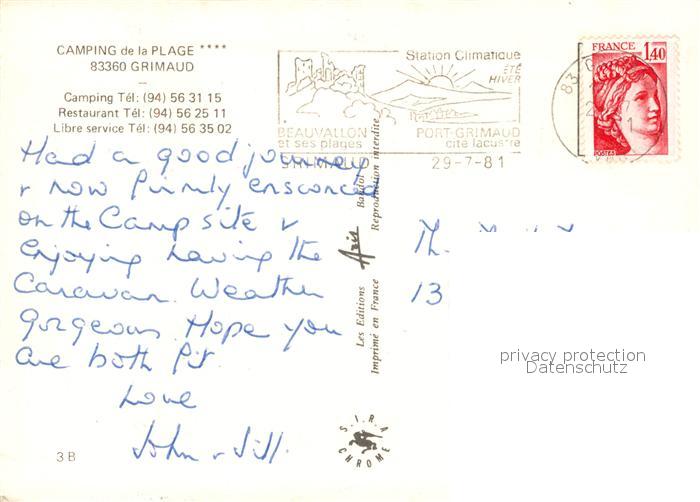 CAMPING de la PLAGE ****
83360 GRIMAUD
Camping Tél: (94) 56 31 15
Restaurant Tél: (94) 56 25 11
Libre service Tél: (94) 56 35 02
Station Climatique
ÉTÉ
HIVER
BEAUVALLON
et ses plages
PORT-GRIMAUD
cité lacustre
GRIMAUD
29-7-81
83
FRANCE
1,40
POSTES
Had a good journey
& now firmly ensconced
on the Camp site &
enjoying having the
Caravan. Weather
gorgeous. Hope you
are both fit.
Love
John & Jill.
13
Les Editions Aris
Imprimé en France
Reproduction interdite
SIRA
CHROME
3 B
privacy protection
Datenschutz